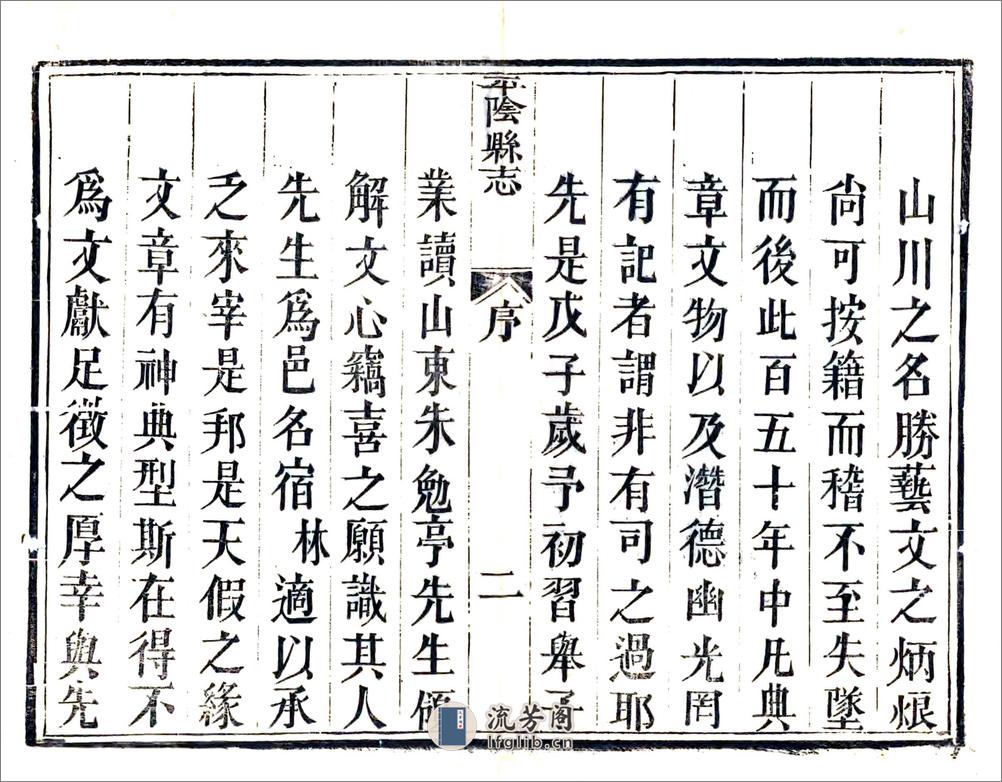 山川之名勝藝文之炳烺
尚可按籍而稽不至失墜
而後此百五十年中凡典
章文物以及潛德幽光罔
有記者謂非有司之過耶
先是戊子歲予初習舉子
平陰縣志
序
二
業讀山東朱勉亭先生
解文心竊喜之願識其人
先生爲邑名宿林適以承
乏來宰是邦是天假之緣
文章有神典型斯在得不
爲文獻足徵之厚幸與先
流芳閣
lfglib.cn